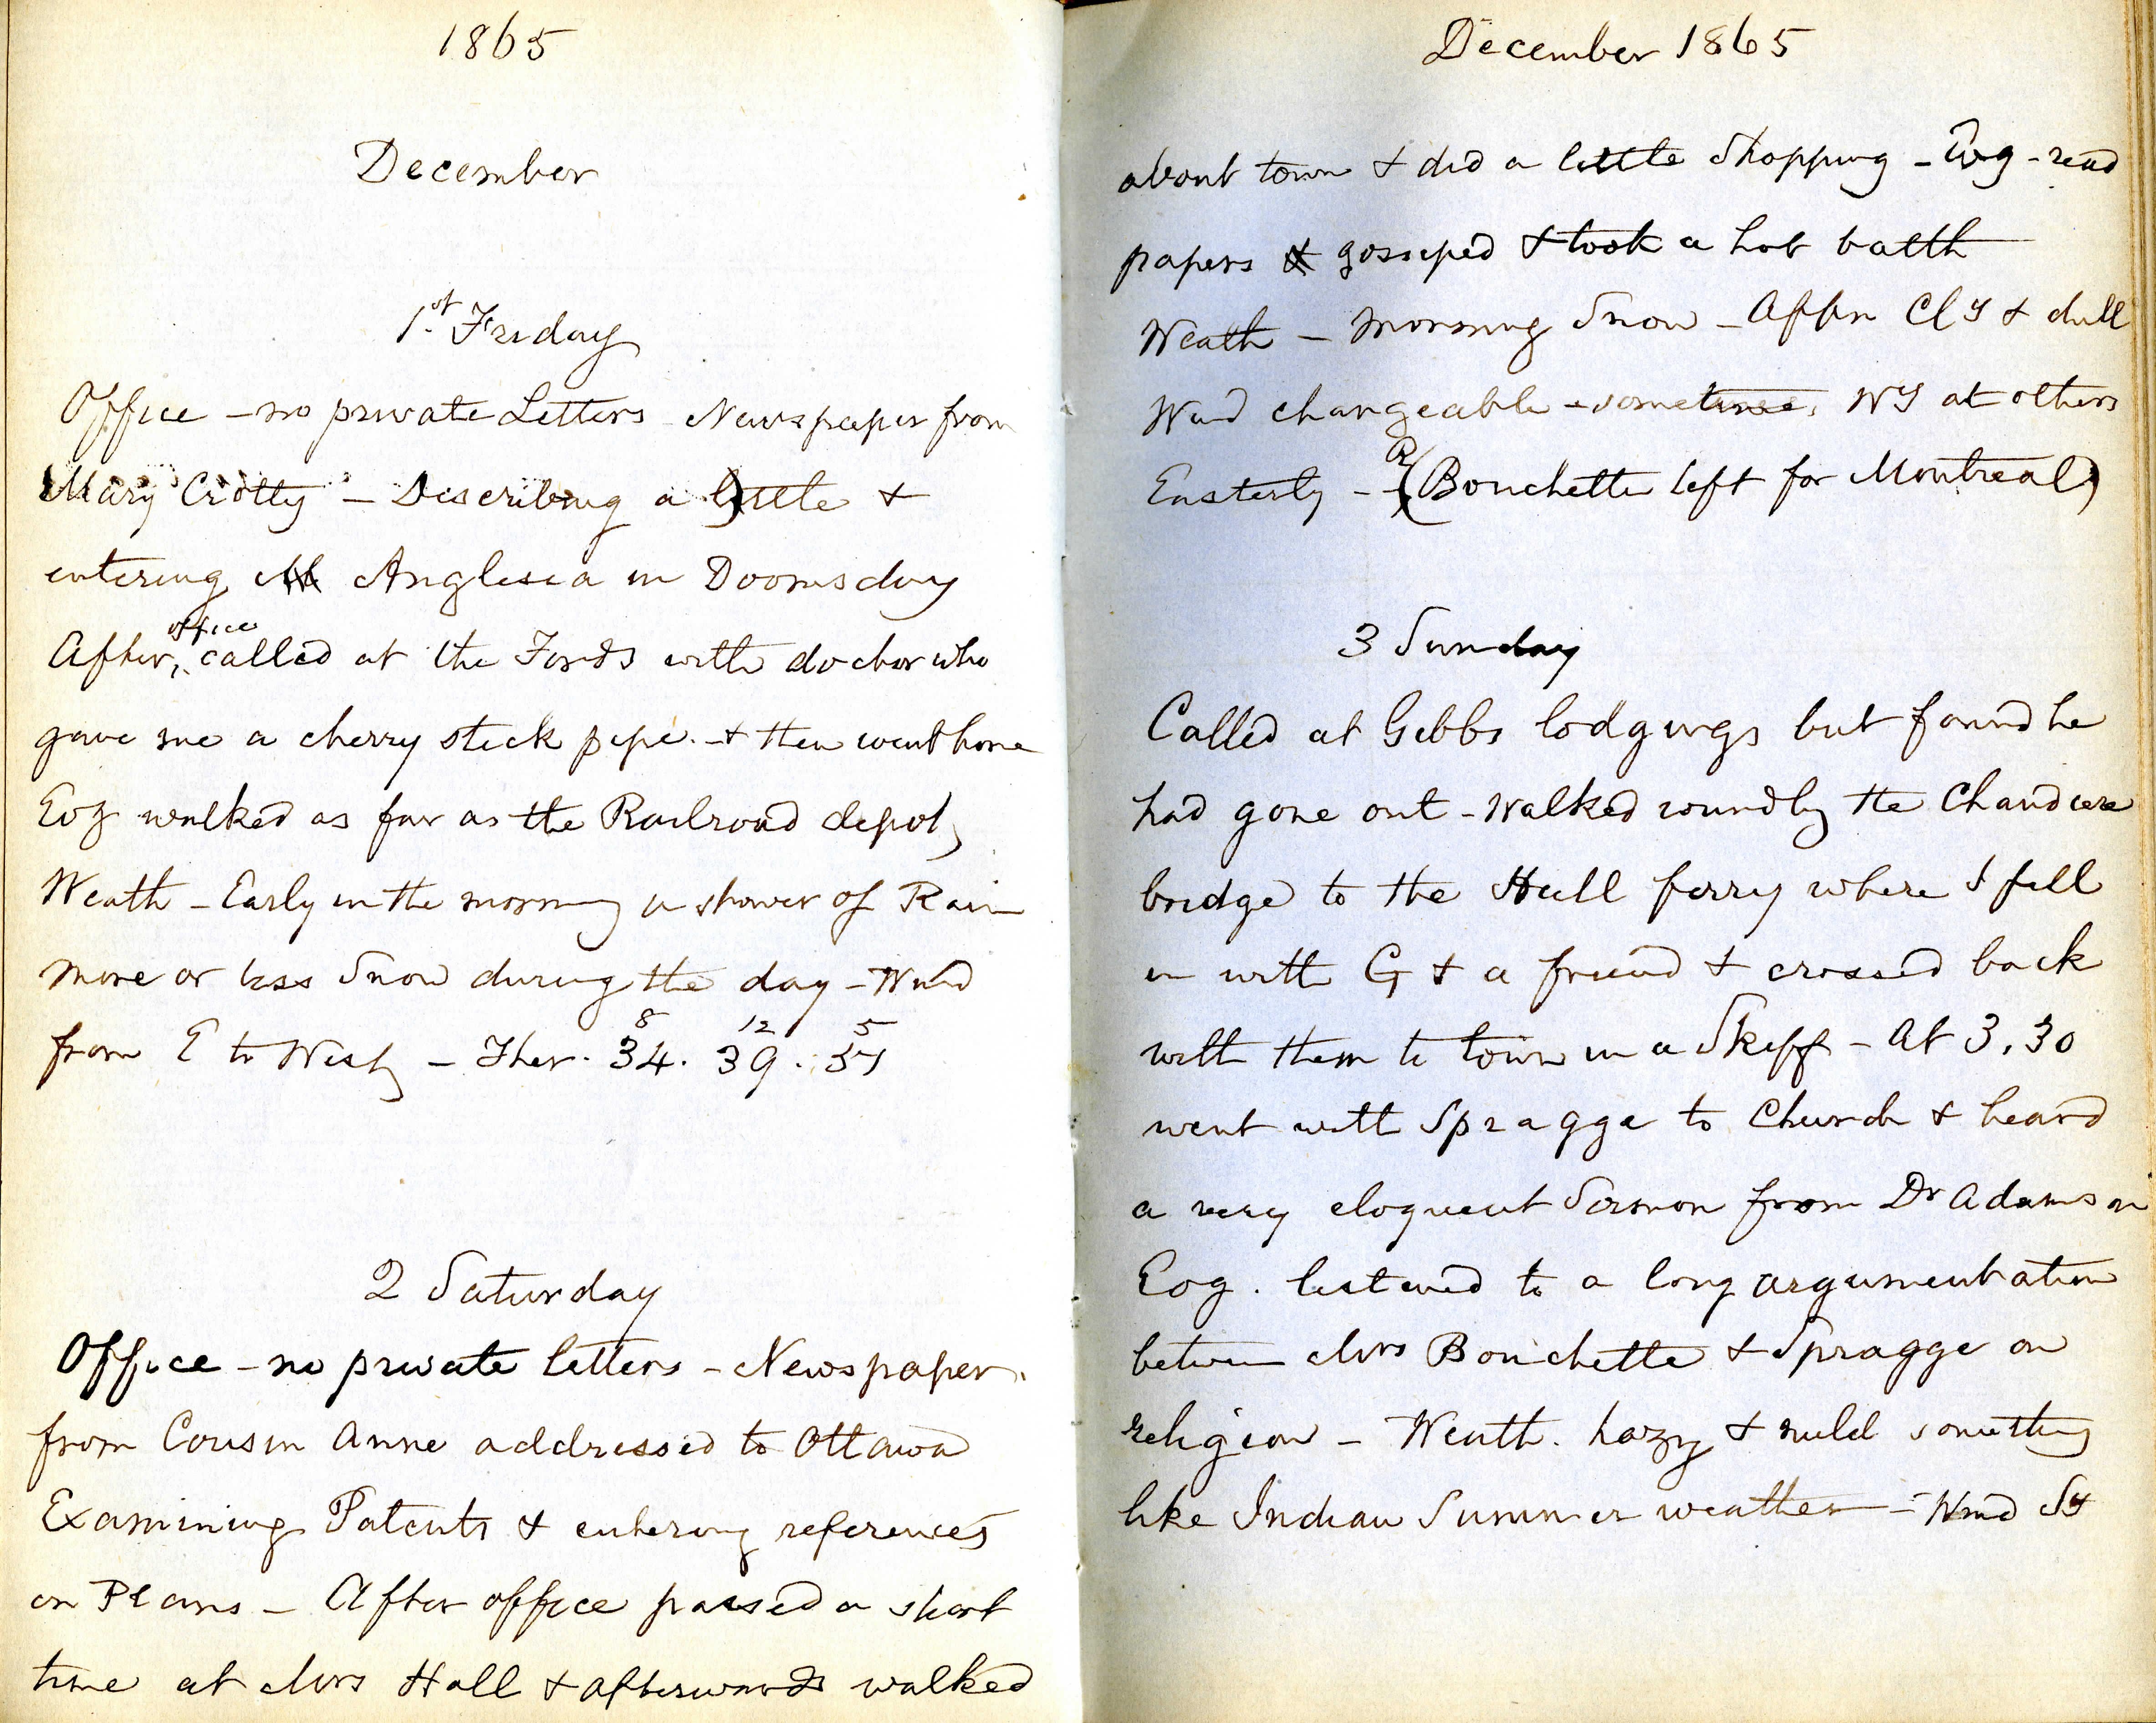 1865
December
1st Friday
Office - no private Letters - Newspaper from
Mary Crotty - Describing a little &
entering Anglesea in Doomsday
After office called at the Fords with doctor who
gave me a cherry stick pipe - & then went home
Evg walked as far as the Railroad depot
Weath - Early in the morning a shower of Rain
more or less Snow during the day - Wind
from E to West - Ther. 8 34. 12 39. 5 37
2 Saturday
Office - no private letters - Newspaper
from Cousin Anne addressed to Ottawa
Examining Patents & entering references
on Plans - After office passed a short
time at Mrs Hall & afterwards walked
December 1865
about town & did a little Shopping - Evg - read
papers & gossiped & took a hot bath
Weath - Morning Snow - Aftn Cly & dull
Wind changeable - sometimes Wy at others
Easterly - (R Bouchette left for Montreal)
3 Sunday
Called at Gibbs lodgings but found he
had gone out - Walked round by the Chaudiere
bridge to the Hull ferry where I fell
in with G & a friend & crossed back
with them to town in a Skiff - At 3.30
went with Spragge to Church & heard
a very eloquent Sermon from Dr Adamson
Evg. listened to a long argumentation
between Mrs Bouchette & Spragge on
religion - Weath. hazy & mild something
like Indian Summer weather - Wind Sy